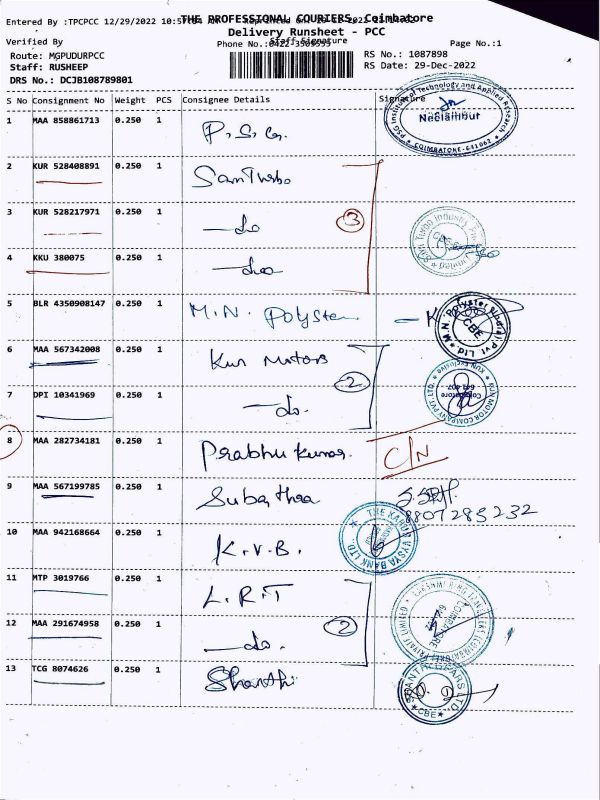 Entered By :TPCPCC 12/29/2022
THE PROFESSIONAL COURIERS, Coimbatore
Delivery Runsheet - PCC
Verified By
Staff Signature
Phone No.:0422-3509555
Page No.:1
Route: MGPUDURPCC
RS No.: 1087898
Staff: RUSHEEP
RS Date: 29-Dec-2022
DRS No.: DCJB108789801
S No Consignment No Weight PCS Consignee Details Signature
PSG Institute of Technology and Applied Research
Neelambur
COIMBATORE-641062
1 MAA 858861713 0.250 1 P.S.G.
2 KUR 528408891 0.250 1 SanTurbo
3 KUR 528217971 0.250 1 —do
3
4 KKU 380075 0.250 1 —do
5 BLR 4350908147 0.250 1 M.N. Polyster
CBE
6 MAA 567342008 0.250 1 Kun Motors
2
KUN MOTOR COMPANY PVT. LTD.
Coimbatore
7 DPI 10341969 0.250 1 —do.
8 MAA 282734181 0.250 1 Prabhu Kumar. C/N
9 MAA 567199785 0.250 1 Subathra
8807283232
10 MAA 942168664 0.250 1 K.V.B.
THE KARUR VYSYA BANK LTD.
11 MTP 3019766 0.250 1 L.R.T
12 MAA 291674958 0.250 1 —do.
2
COIMBATORE
13 TCG 8074626 0.250 1 Shanthi
SHANTHI GEARS LTD
CBE